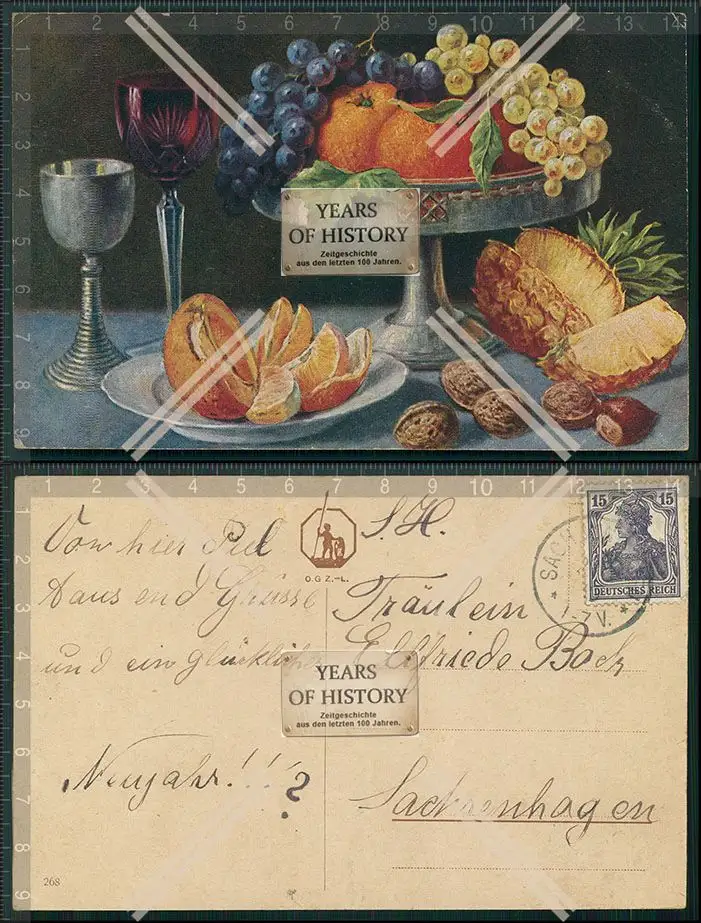 1 2 3 4 5 6 7 8 9 10 11 12 13 14
2
3
4
5
6
7
8
9
YEARS
OF HISTORY
Zeitgeschichte
aus den letzten 100 Jahren.
1 2 3 4 5 6 7 8 9 10 11 12 13 14
2
3
4
5
6
7
8
9
Von hier Piel
taus end Grüsse
und ein glückliches
Neujahr!!!
?
O.G.Z.-L.
S. H.
Fräulein
Elfriede Bock
Sachsenhagen
15 15
DEUTSCHES REICH
SACH
YEARS
OF HISTORY
Zeitgeschichte
aus den letzten 100 Jahren.
268